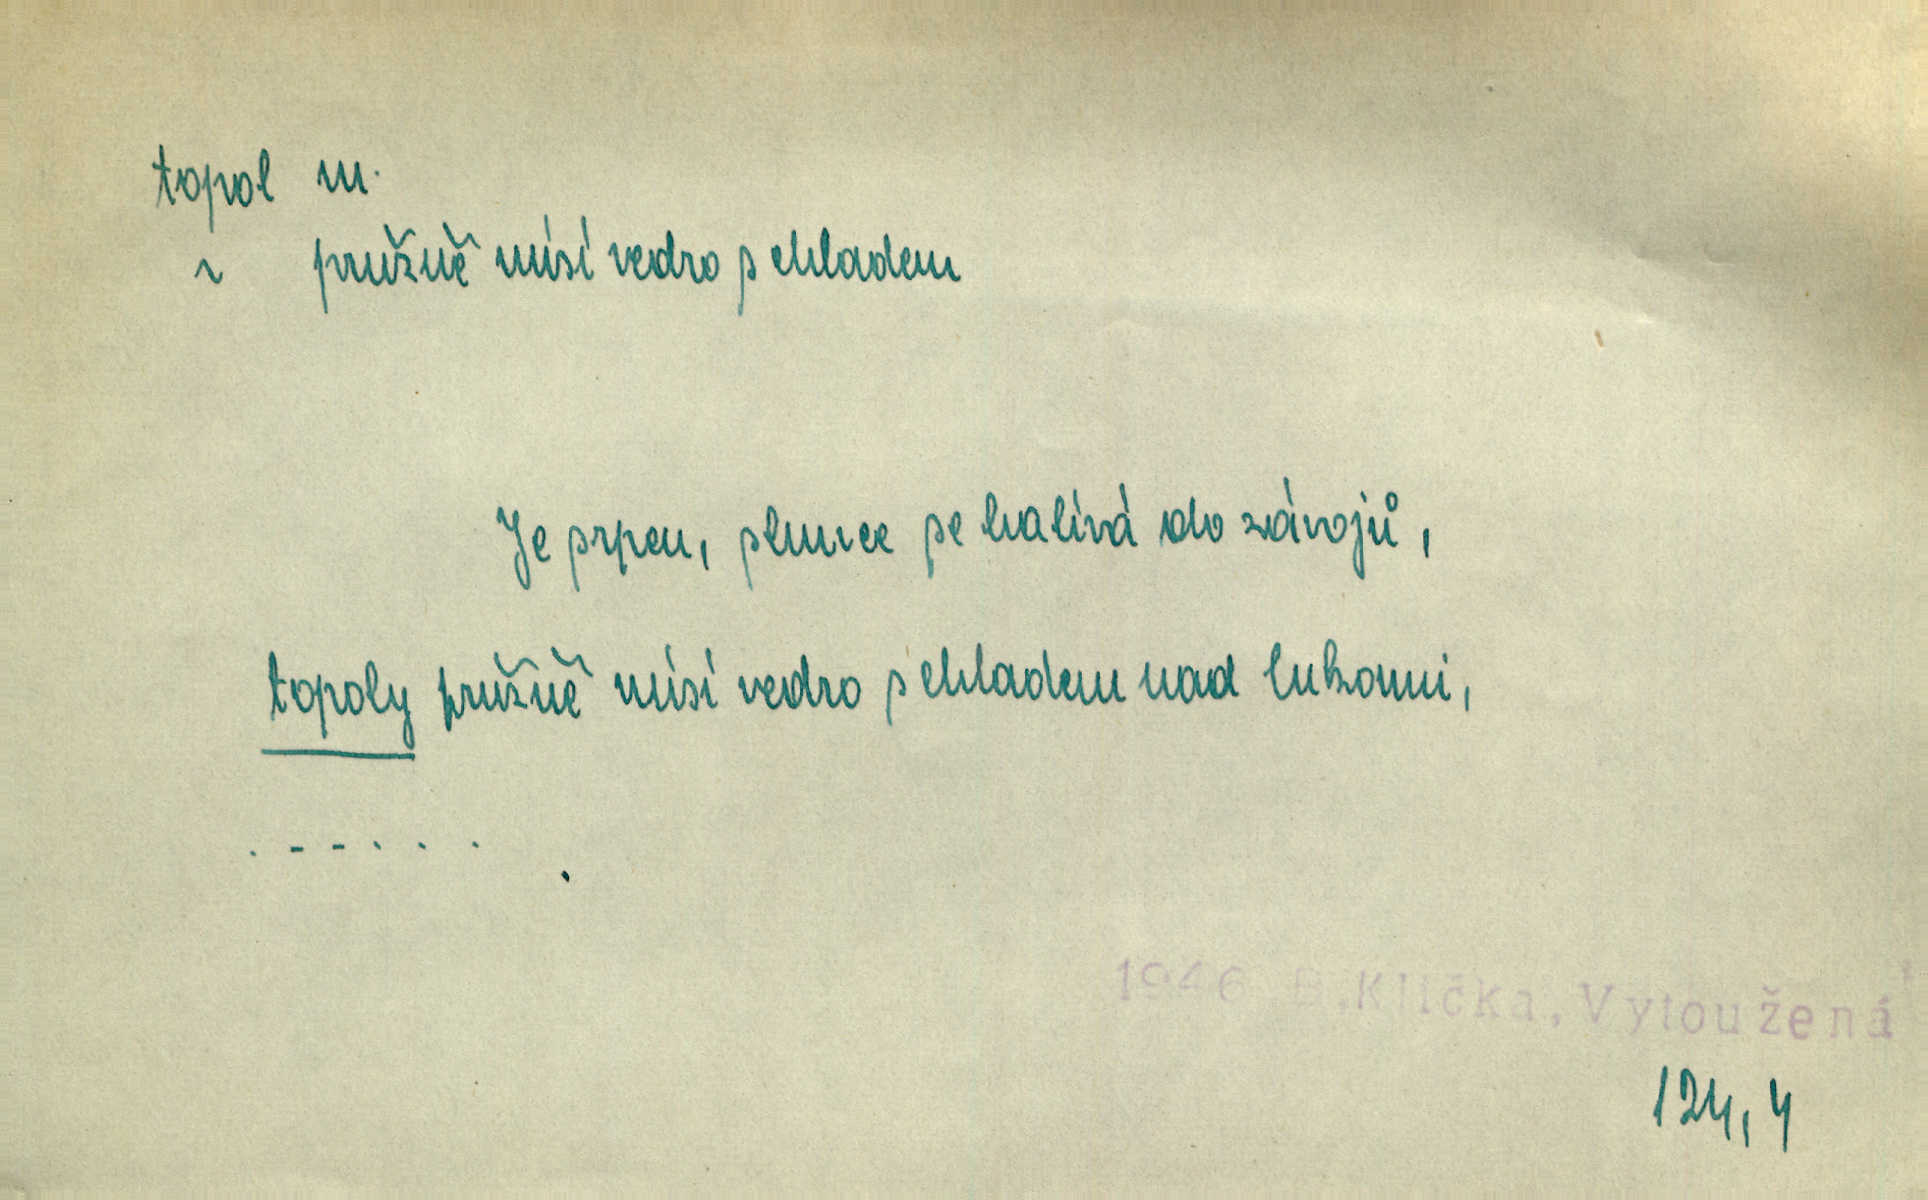 topol m.
~ pružně mísí vedro s chladem
Je srpen, slunce se halívá do závojů,
topoly pružně mísí vedro s chladem nad lukami,
. - - . . . .
1946 B.Klička, Vytoužená
124,4